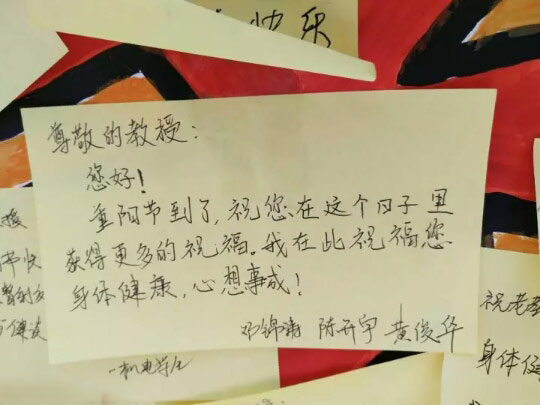 快乐
尊敬的教授：
您好！
重阳节到了，祝您在这个日子里
获得更多的祝福。我在此祝福您
身体健康，心想事成！
邓锦涛 陈开宇 黄俊华
节快
一机电学生
祝老
身体健